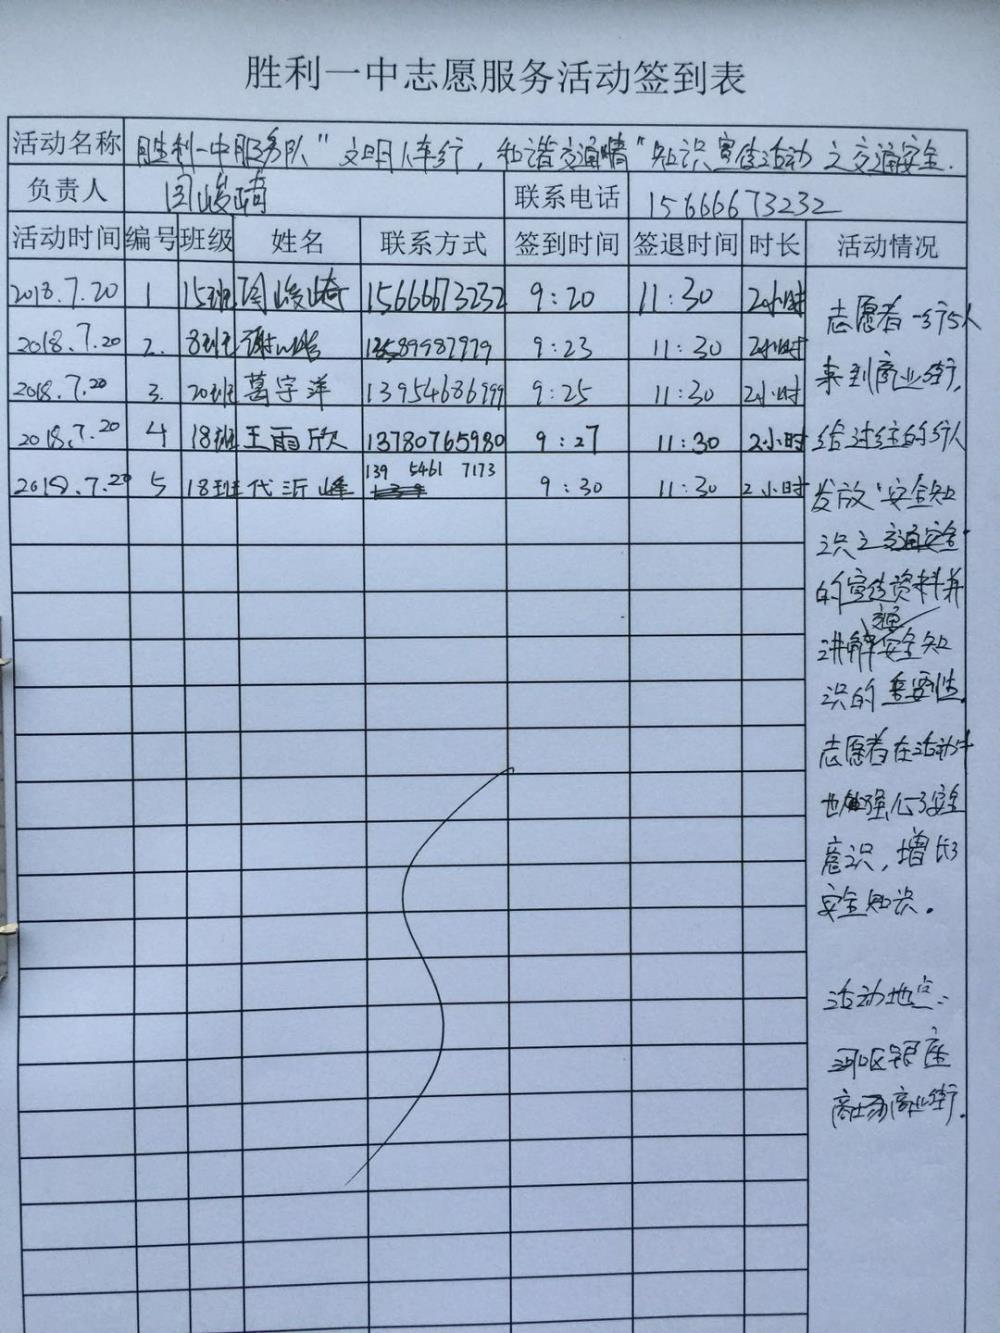 胜利一中志愿服务活动签到表
活动名称 胜利一中服务队"文明人车行，和谐交通情"知识宣传活动之交通安全.
负责人 闫峻崎 联系电话 15666673232
活动时间 编号 班级 姓名 联系方式 签到时间 签退时间 时长 活动情况
2018.7.20 1 15班 闫峻崎 15666673232 9:20 11:30 2小时
2018.7.20 2. 8班 谢 9:23 11:30 2小时
2018.7.20 3. 20班 葛宇洋 13954686999 9:25 11:30 2小时
2018.7.20 4 18班 王雨欣 13780765980 9:27 11:30 2小时
2018.7.20 5 18班 代沂峰 139 5461 7173 9:30 11:30 2小时
志愿者一行5人
来到商业街,
给过往的行人
发放"安全知
识之交通安全"
的宣传资料并
讲解交通安全知
识的重要性.
志愿者在活动中
也强化了安全
意识，增长了
安全知识。
活动地点:
河口区银座
商场商业街.